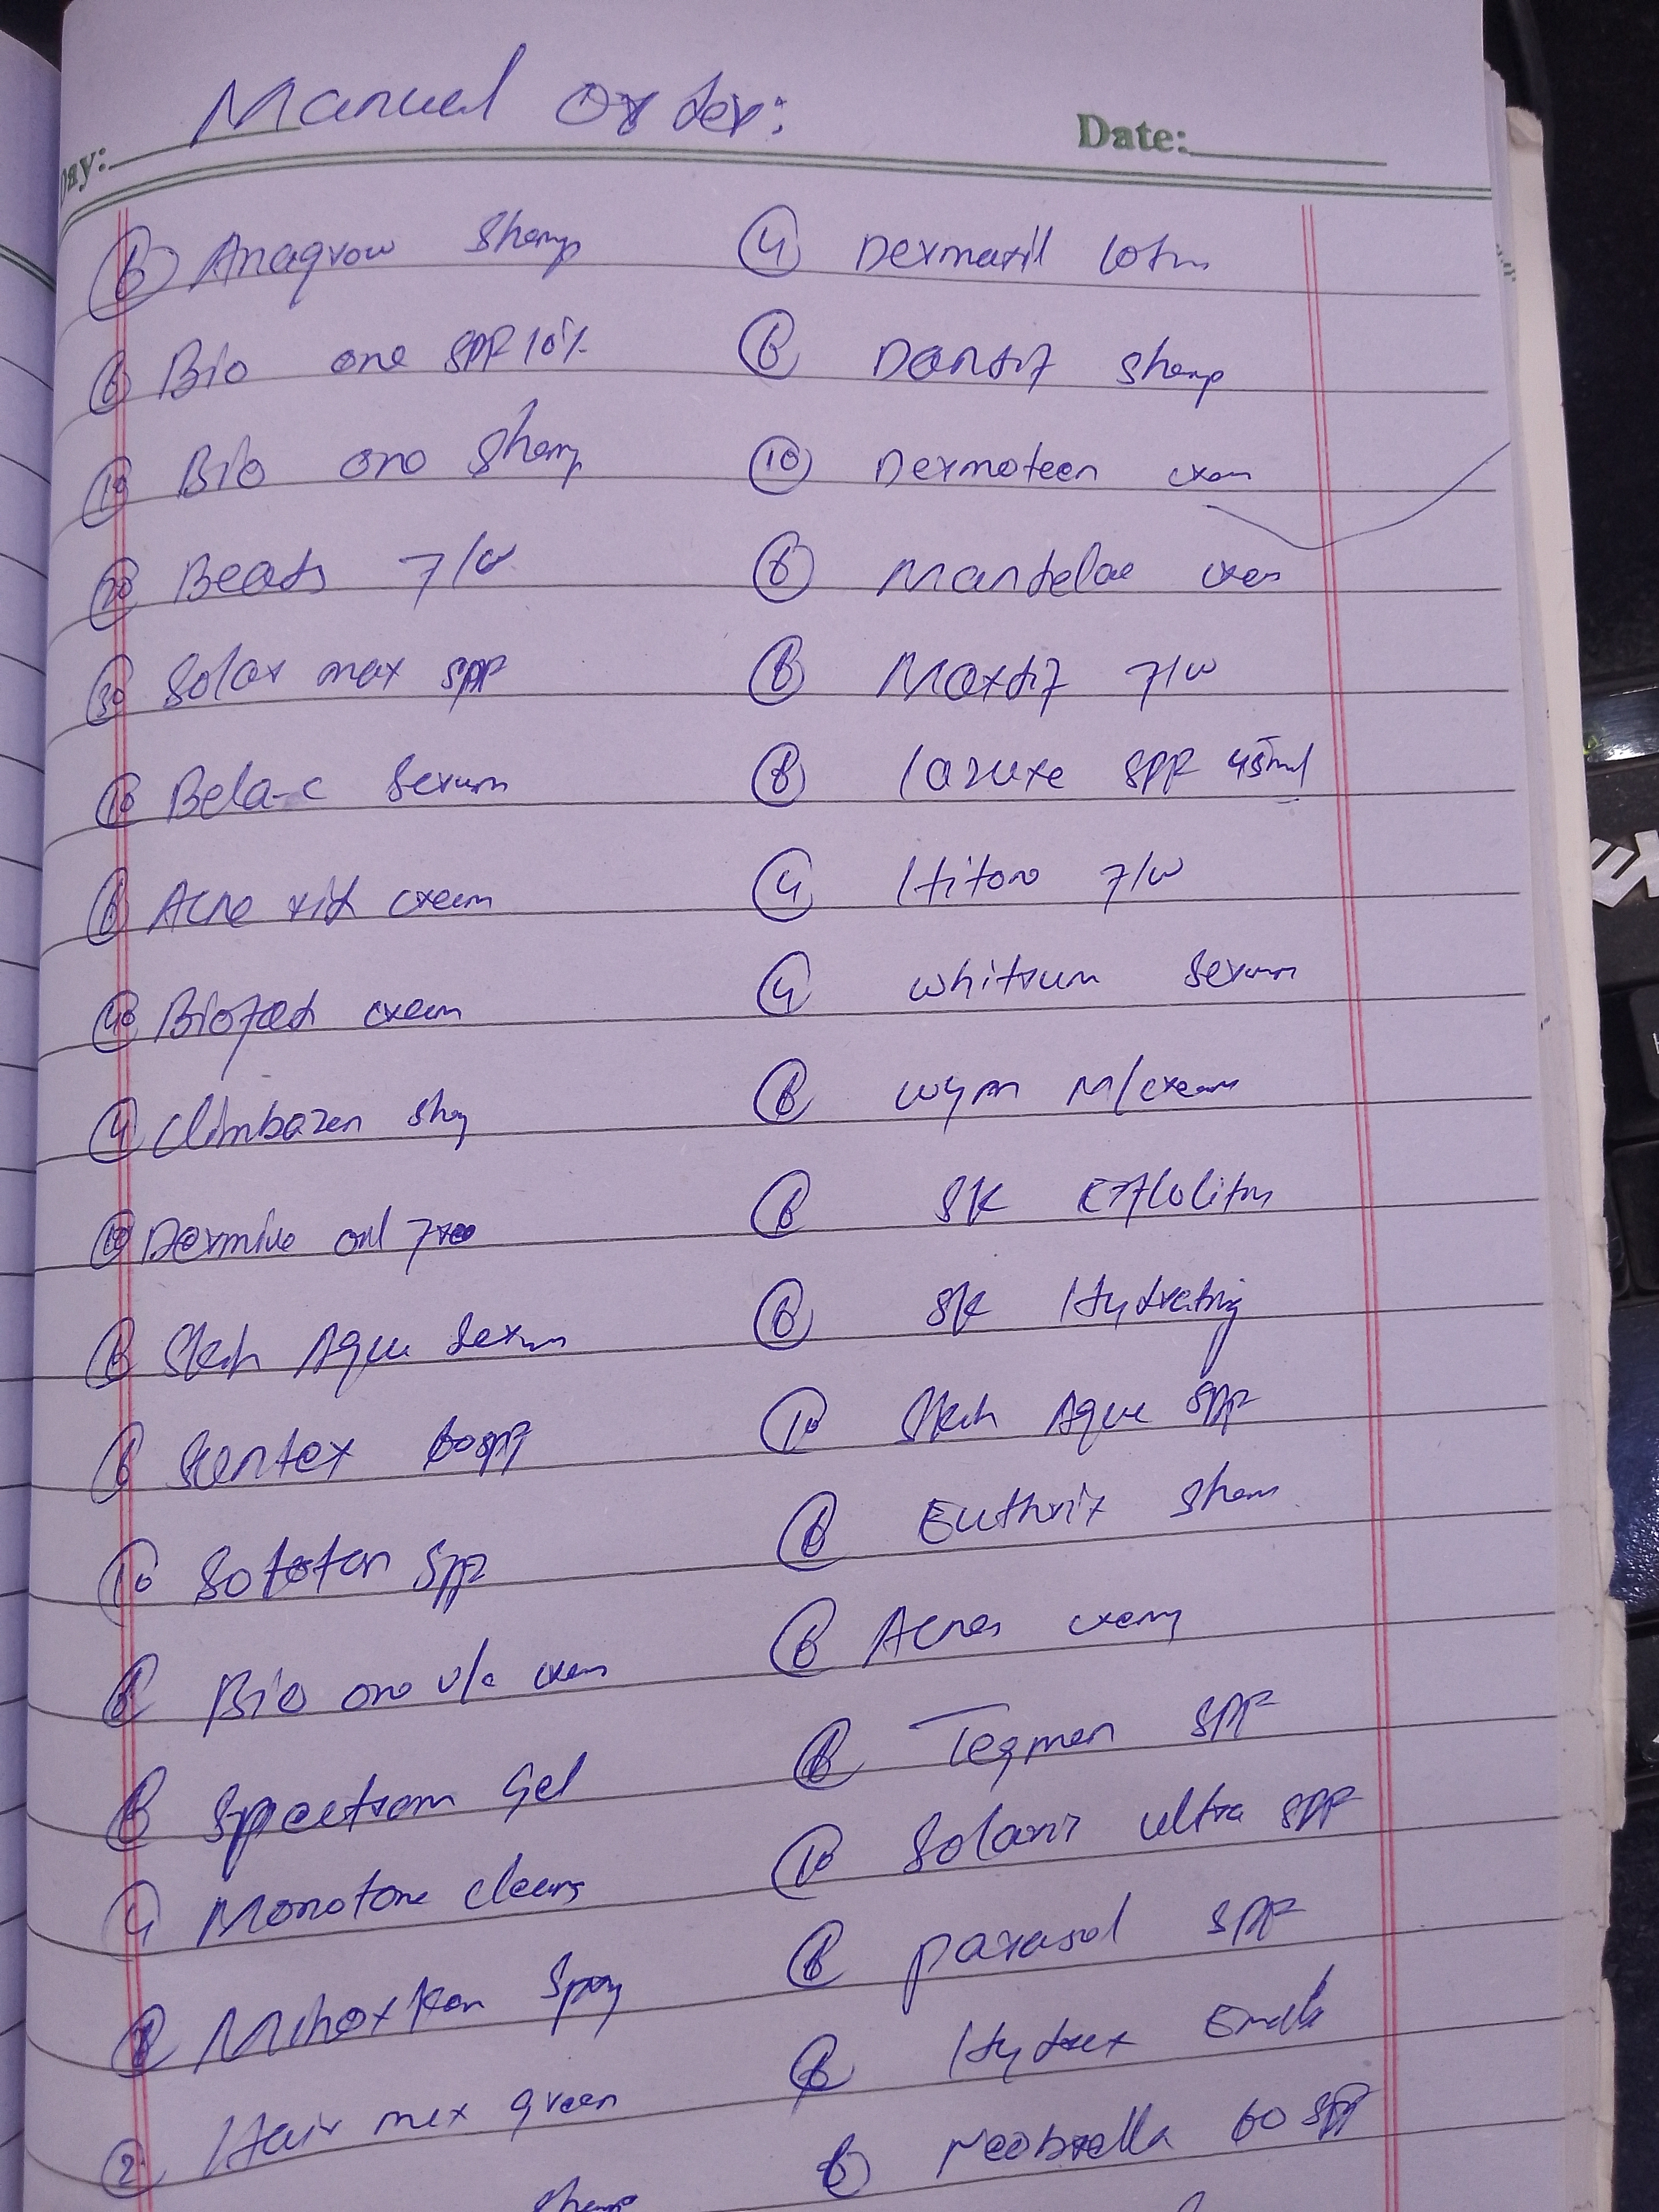 Manual Order:
Day:
Date:
6 Anagrow Shamp
6 Bio one SPF 10%
10 Bio one Shamp
20 Beats f/w
30 Solar max SPF
10 Bela-c Serum
6 Acne rid cream
40 Biofad cream
4 Climbazen
10 Dermive oil free
6 Skin Aqua Serum
6 Suntex 60 SPF
10 SPF
6 Bio one cream
6 Spectram Gel
4 Monotone cleans
Spray
2 Hair mex green
Shamp
4 Dermaxil lotin
6 Shamp
10 Dermoteen cream
6 Mantelae cream
6 f/w
8 lazuxe SPF 45ml
4 Hitone f/w
4 Whitrum Serum
6 Wynn M/cream
6 SK
6 SK Hydrating
10 Skin Aqua SPF
6 Euthrix Sham
6 Acnes cream
6 Tegmen SPF
10 Solarir ultra SPF
6 parasol SPF
6
6 Neobrella 60 SPF